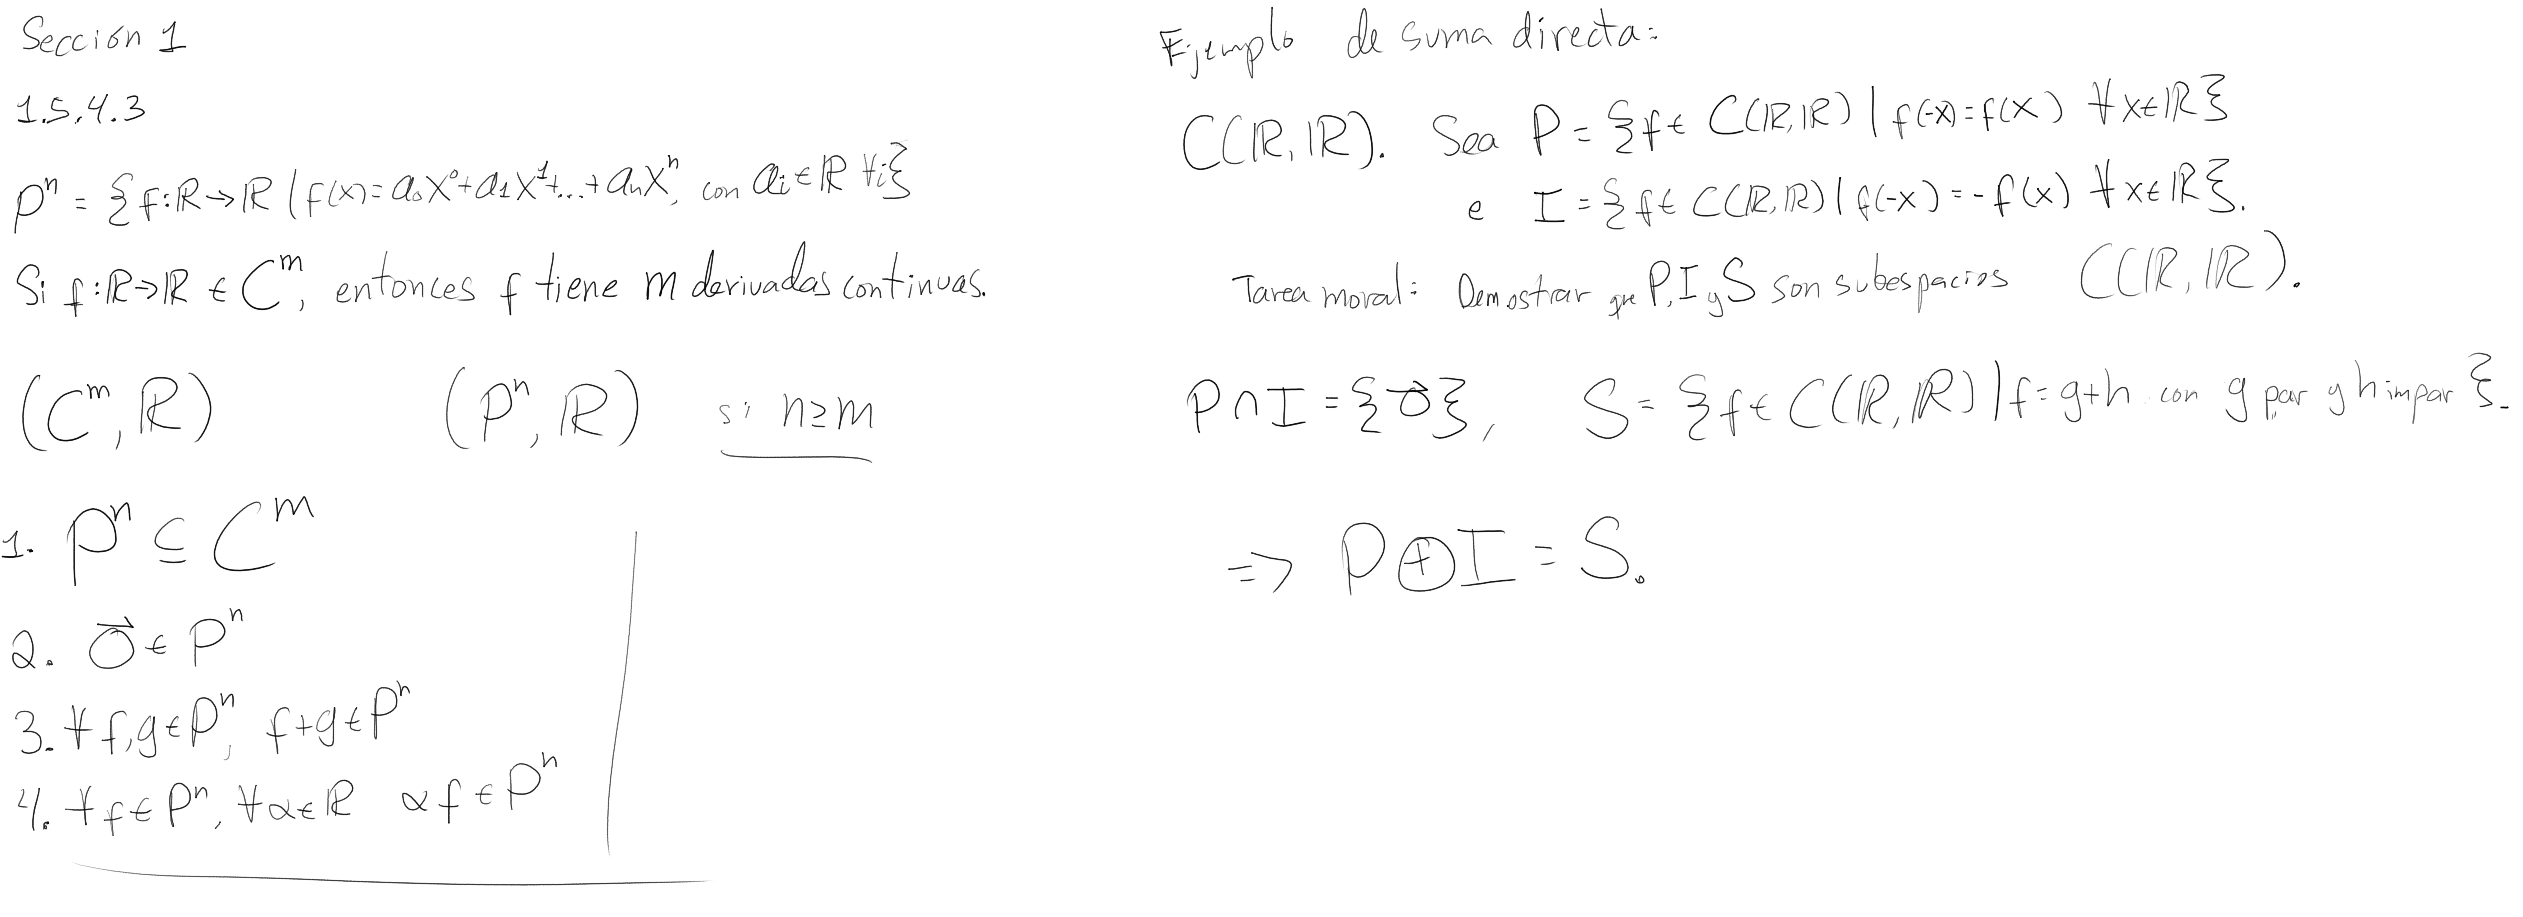 Sección 1
1.5.4.3
Pⁿ = {f:ℝ→ℝ | f(x)=a₀x⁰+a₁x¹+...+aₙxⁿ, con aᵢ∈ℝ ∀i}
Si f:ℝ→ℝ ∈ Cᵐ, entonces f tiene m derivadas continuas.
(Cᵐ, ℝ) (Pⁿ, ℝ) si n≥m
1. Pⁿ ⊆ Cᵐ
2. 0⃗ ∈ Pⁿ
3. ∀ f,g∈Pⁿ, f+g∈Pⁿ
4. ∀ f∈Pⁿ, ∀α∈ℝ αf∈Pⁿ
Ejemplo de suma directa:
C(ℝ,ℝ). Sea P = {f∈ C(ℝ,ℝ) | f(-x)=f(x) ∀x∈ℝ}
e I = {f∈ C(ℝ,ℝ) | f(-x)=-f(x) ∀x∈ℝ}.
Tarea moral: Demostrar que P, I y S son subespacios C(ℝ,ℝ).
P∩I = {0⃗}, S = {f∈ C(ℝ,ℝ) | f=g+h con g par y h impar}.
=> P⊕I = S.